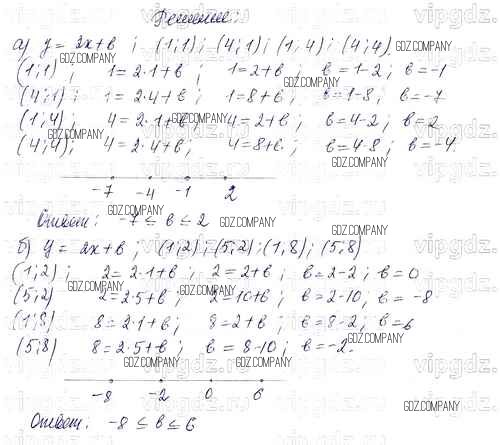 Решение:
а) y = 2x+в ; (1;1) ; (4;1) ; (1;4) ; (4;4).
(1;1) ; 1=2·1+в ; 1=2+в ; в=1-2 ; в=-1
(4;1) ; 1=2·4+в ; 1=8+в ; в=1-8 ; в=-7
(1;4) ; 4=2·1+в ; 4=2+в ; в=4-2 ; в=2
(4;4) ; 4=2·4+в ; 4=8+в ; в=4-8 ; в=-4
-7 -4 -1 2
Ответ: -7 ≤ в ≤ 2
б) y = 2x+в ; (1;2) ; (5;2) ; (1;8) ; (5;8)
(1;2) ; 2=2·1+в ; 2=2+в ; в=2-2 ; в=0
(5;2) 2=2·5+в ; 2=10+в ; в=2-10, в=-8
(1;8) 8=2·1+в ; 8=2+в ; в=8-2 ; в=6
(5;8) 8=2·5+в ; в=8-10 ; в=-2.
-8 -2 0 6
Ответ: -8 ≤ в ≤ 6
GDZ.COMPANY
vipgdz.ru